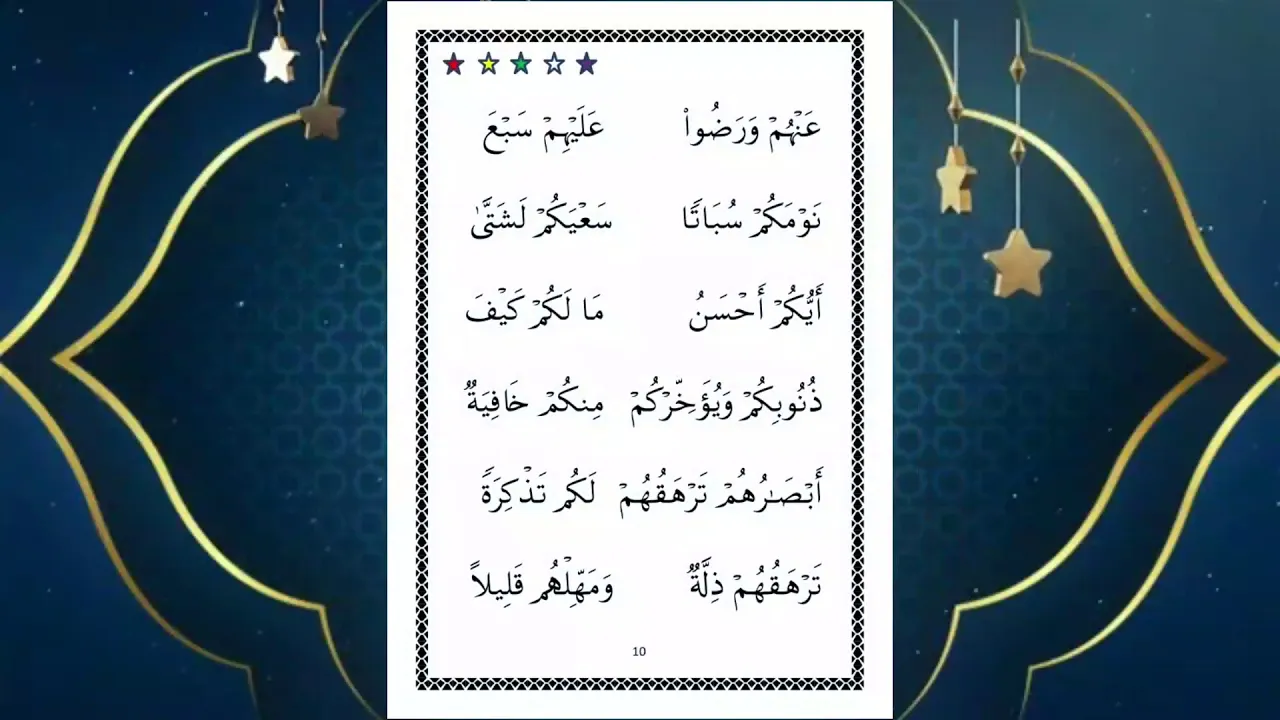 عَنْهُمْ وَرَضُوا۟ عَلَيْهِمْ سَبْعَ
نَوْمَكُمْ سُبَاتًا سَعْيَكُمْ لَشَتَّىٰ
أَيُّكُمْ أَحْسَنُ مَا لَكُمْ كَيْفَ
ذُنُوبِكُمْ وَيُؤَخِّرْكُمْ مِنكُمْ خَافِيَةٌ
أَبْصَـٰرُهُمْ تَرْهَقُهُمْ لَكُم تَذْكِرَةً
تَرْهَقُهُمْ ذِلَّةٌ وَمَهِّلْهُم قَلِيلاً
10